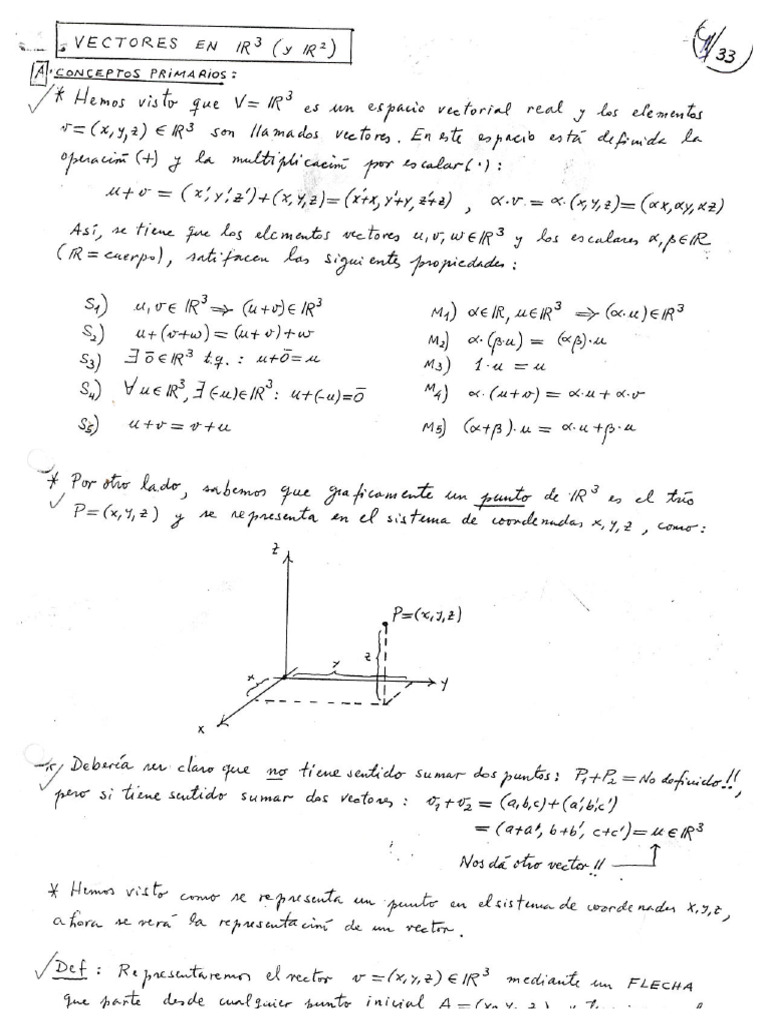 VECTORES EN ℝ³ (y ℝ²)
/33
A. CONCEPTOS PRIMARIOS:
* Hemos visto que V=ℝ³ es un espacio vectorial real y los elementos
v=(x,y,z)∈ℝ³ son llamados vectores. En este espacio está definida la
operación (+) y la multiplicación por escalar(·):
u+v = (x',y',z')+(x,y,z)=(x'+x, y'+y, z'+z) , α·v = α·(x,y,z)=(αx,αy,αz)
Así, se tiene que los elementos vectores u,v,w∈ℝ³ y los escalares α,β∈ℝ
(ℝ=cuerpo), satisfacen las siguientes propiedades:
S₁) u,v∈ℝ³ ⇒ (u+v)∈ℝ³
S₂) u+(v+w)=(u+v)+w
S₃) ∃ō∈ℝ³ t.q.: u+ō=u
S₄) ∀u∈ℝ³,∃(-u)∈ℝ³: u+(-u)=ō
S₅) u+v=v+u
M₁) α∈ℝ, u∈ℝ³ ⇒ (α·u)∈ℝ³
M₂) α·(β·u) = (αβ)·u
M₃) 1·u = u
M₄) α·(u+v) = α·u + α·v
M₅) (α+β)·u = α·u+β·u
* Por otro lado, sabemos que graficamente un punto de ℝ³ es el trío
P=(x,y,z) y se representa en el sistema de coordenadas x,y,z, como:
z
P=(x,y,z)
z
y
x
y
x
* Debería ser claro que no tiene sentido sumar dos puntos: P₁+P₂ = No definido!!,
pero si tiene sentido sumar dos vectores: v₁+v₂ = (a,b,c)+(a',b',c')
= (a+a', b+b', c+c')=u∈ℝ³
Nos dá otro vector!!
* Hemos visto como se representa un punto en el sistema de coordenadas x,y,z,
ahora se verá la representación de un vector.
Def: Representaremos el vector v=(x,y,z)∈ℝ³ mediante un FLECHA
que parte desde cualquier punto inicial A=